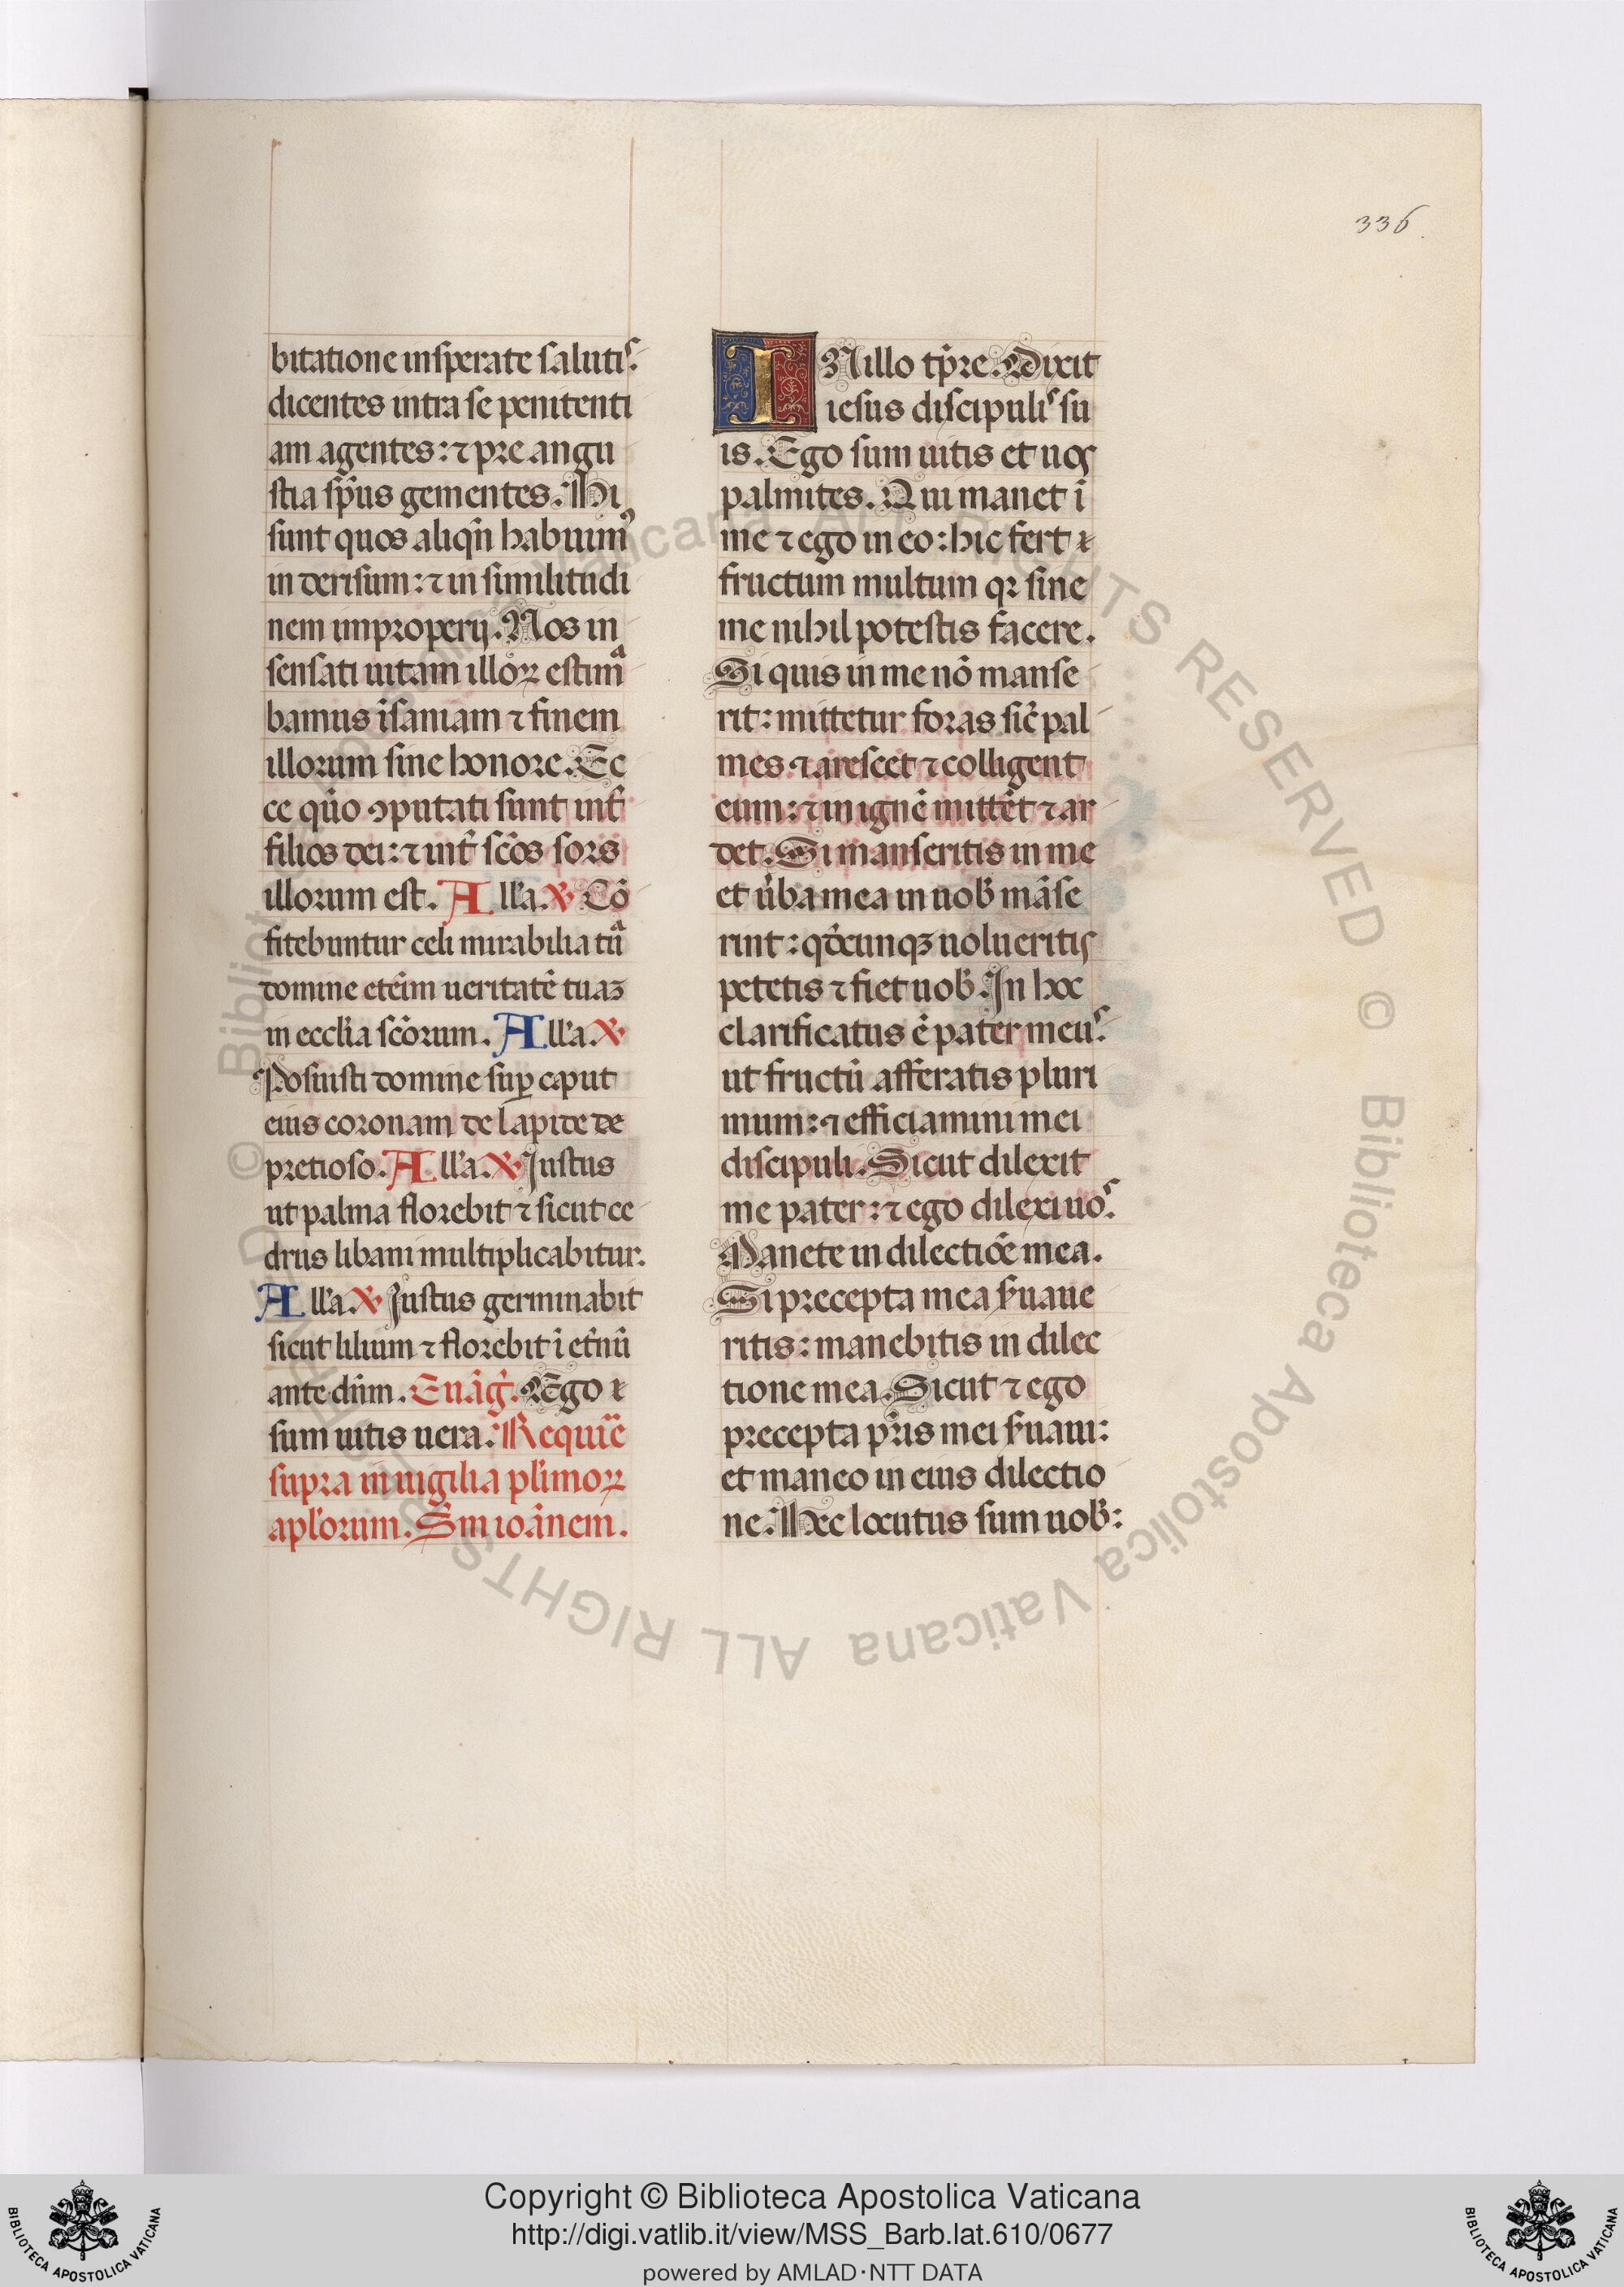 336.
bitatione insperate salutis:
dicentes intra se penitenti
am agentes: ⁊ pre angu
stia sp̄us gementes. Hi
sunt quos aliqn̄ habuim⁹
in derisum: ⁊ in similitudi
nem improperij. Nos in
sensati uitam illoꝝ estima
bamus īsaniam ⁊ finem
illorum sine honore. Ec
ce quō ꝯputati sunt int̄
filios dei: ⁊ int̄ sc̄os sors
illorum est. All'a. ℣. Cō
fitebuntur celi mirabilia tua
domine eteīm ueritatē tuaꝫ
in eccl'ia sc̄orum. All'a. ℣.
Posuisti domine suꝑ caput
eius coronam de lapide de
pretioso. All'a. ℣. Justus
ut palma florebit ⁊ sicut ce
drus libani multiplicabitur.
All'a. ℣. Justus germinabit
sicut lilium ⁊ florebit ī et̄nū
ante dūm. Euāḡ. Ego
sum uitis uera. Requiē
supra in uigilia pl'imoꝝ
apl'orum. Sm ioānem.
IN illo tp̄re. Dixit
iesus discipulis su
is. Ego sum uitis et uos
palmites. Qui manet ī
me ⁊ ego in eo: hic fert
fructum multum qꝛ sine
me nihil potestis facere.
Si quis in me nō manse
rit: mittetur foras sic̄ pal
mes ⁊ arescet ⁊ colligent
eum: ⁊ in ignē mittēt ⁊ ar
det. Si manseritis in me
et u̾ba mea in uob̾ māse
rint: qd̄cunqꝫ uolueritis
petetis ⁊ fiet uob̾. In hoc
clarificatus ē pater meus:
ut fructū afferatis pluri
mum: ⁊ efficiamini mei
discipuli. Sicut dilexit
me pater: ⁊ ego dilexi uos.
Manete in dilectiōe mea.
Si precepta mea s̾uaue
ritis: manebitis in dilec
tione mea. Sicut ⁊ ego
precepta pr̄is mei s̾uaui:
et maneo in eius dilectio
ne. Hec locutus sum uob̾:
© Biblioteca Apostolica Vaticana ALL RIGHTS RESERVED © Biblioteca Apostolica Vaticana ALL RIGHTS RESERVED
Copyright © Biblioteca Apostolica Vaticana
http://digi.vatlib.it/view/MSS_Barb.lat.610/0677
powered by AMLAD·NTT DATA
BIBLIOTECA APOSTOLICA VATICANA
BIBLIOTECA APOSTOLICA VATICANA